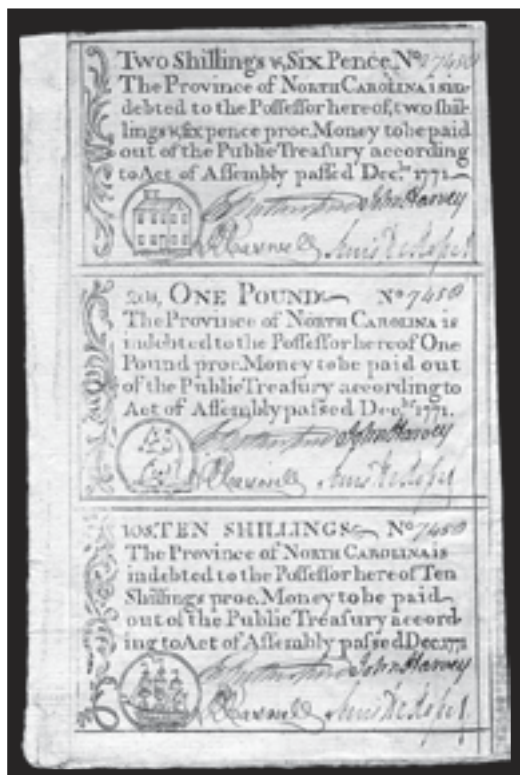 Two Shillings & Six Pence. No 7450
The Province of North Carolina is in-
debted to the Possessor hereof, two shil-
lings & six pence proc. Money to be paid
out of the Public Treasury according
to Act of Assembly passed Decbr. 1771
John Harvey
ONE POUND No 7450
The Province of North Carolina is
indebted to the Possessor hereof One
Pound proc. Money to be paid out
of the Public Treasury according to
Act of Assembly passed Decbr. 1771.
John Harvey
10s. TEN SHILLINGS No 7450
The Province of North Carolina is
indebted to the Possessor hereof Ten
Shillings proc. Money to be paid
out of the Public Treasury accord-
ing to Act of Assembly passed Dec. 1771
John Harvey